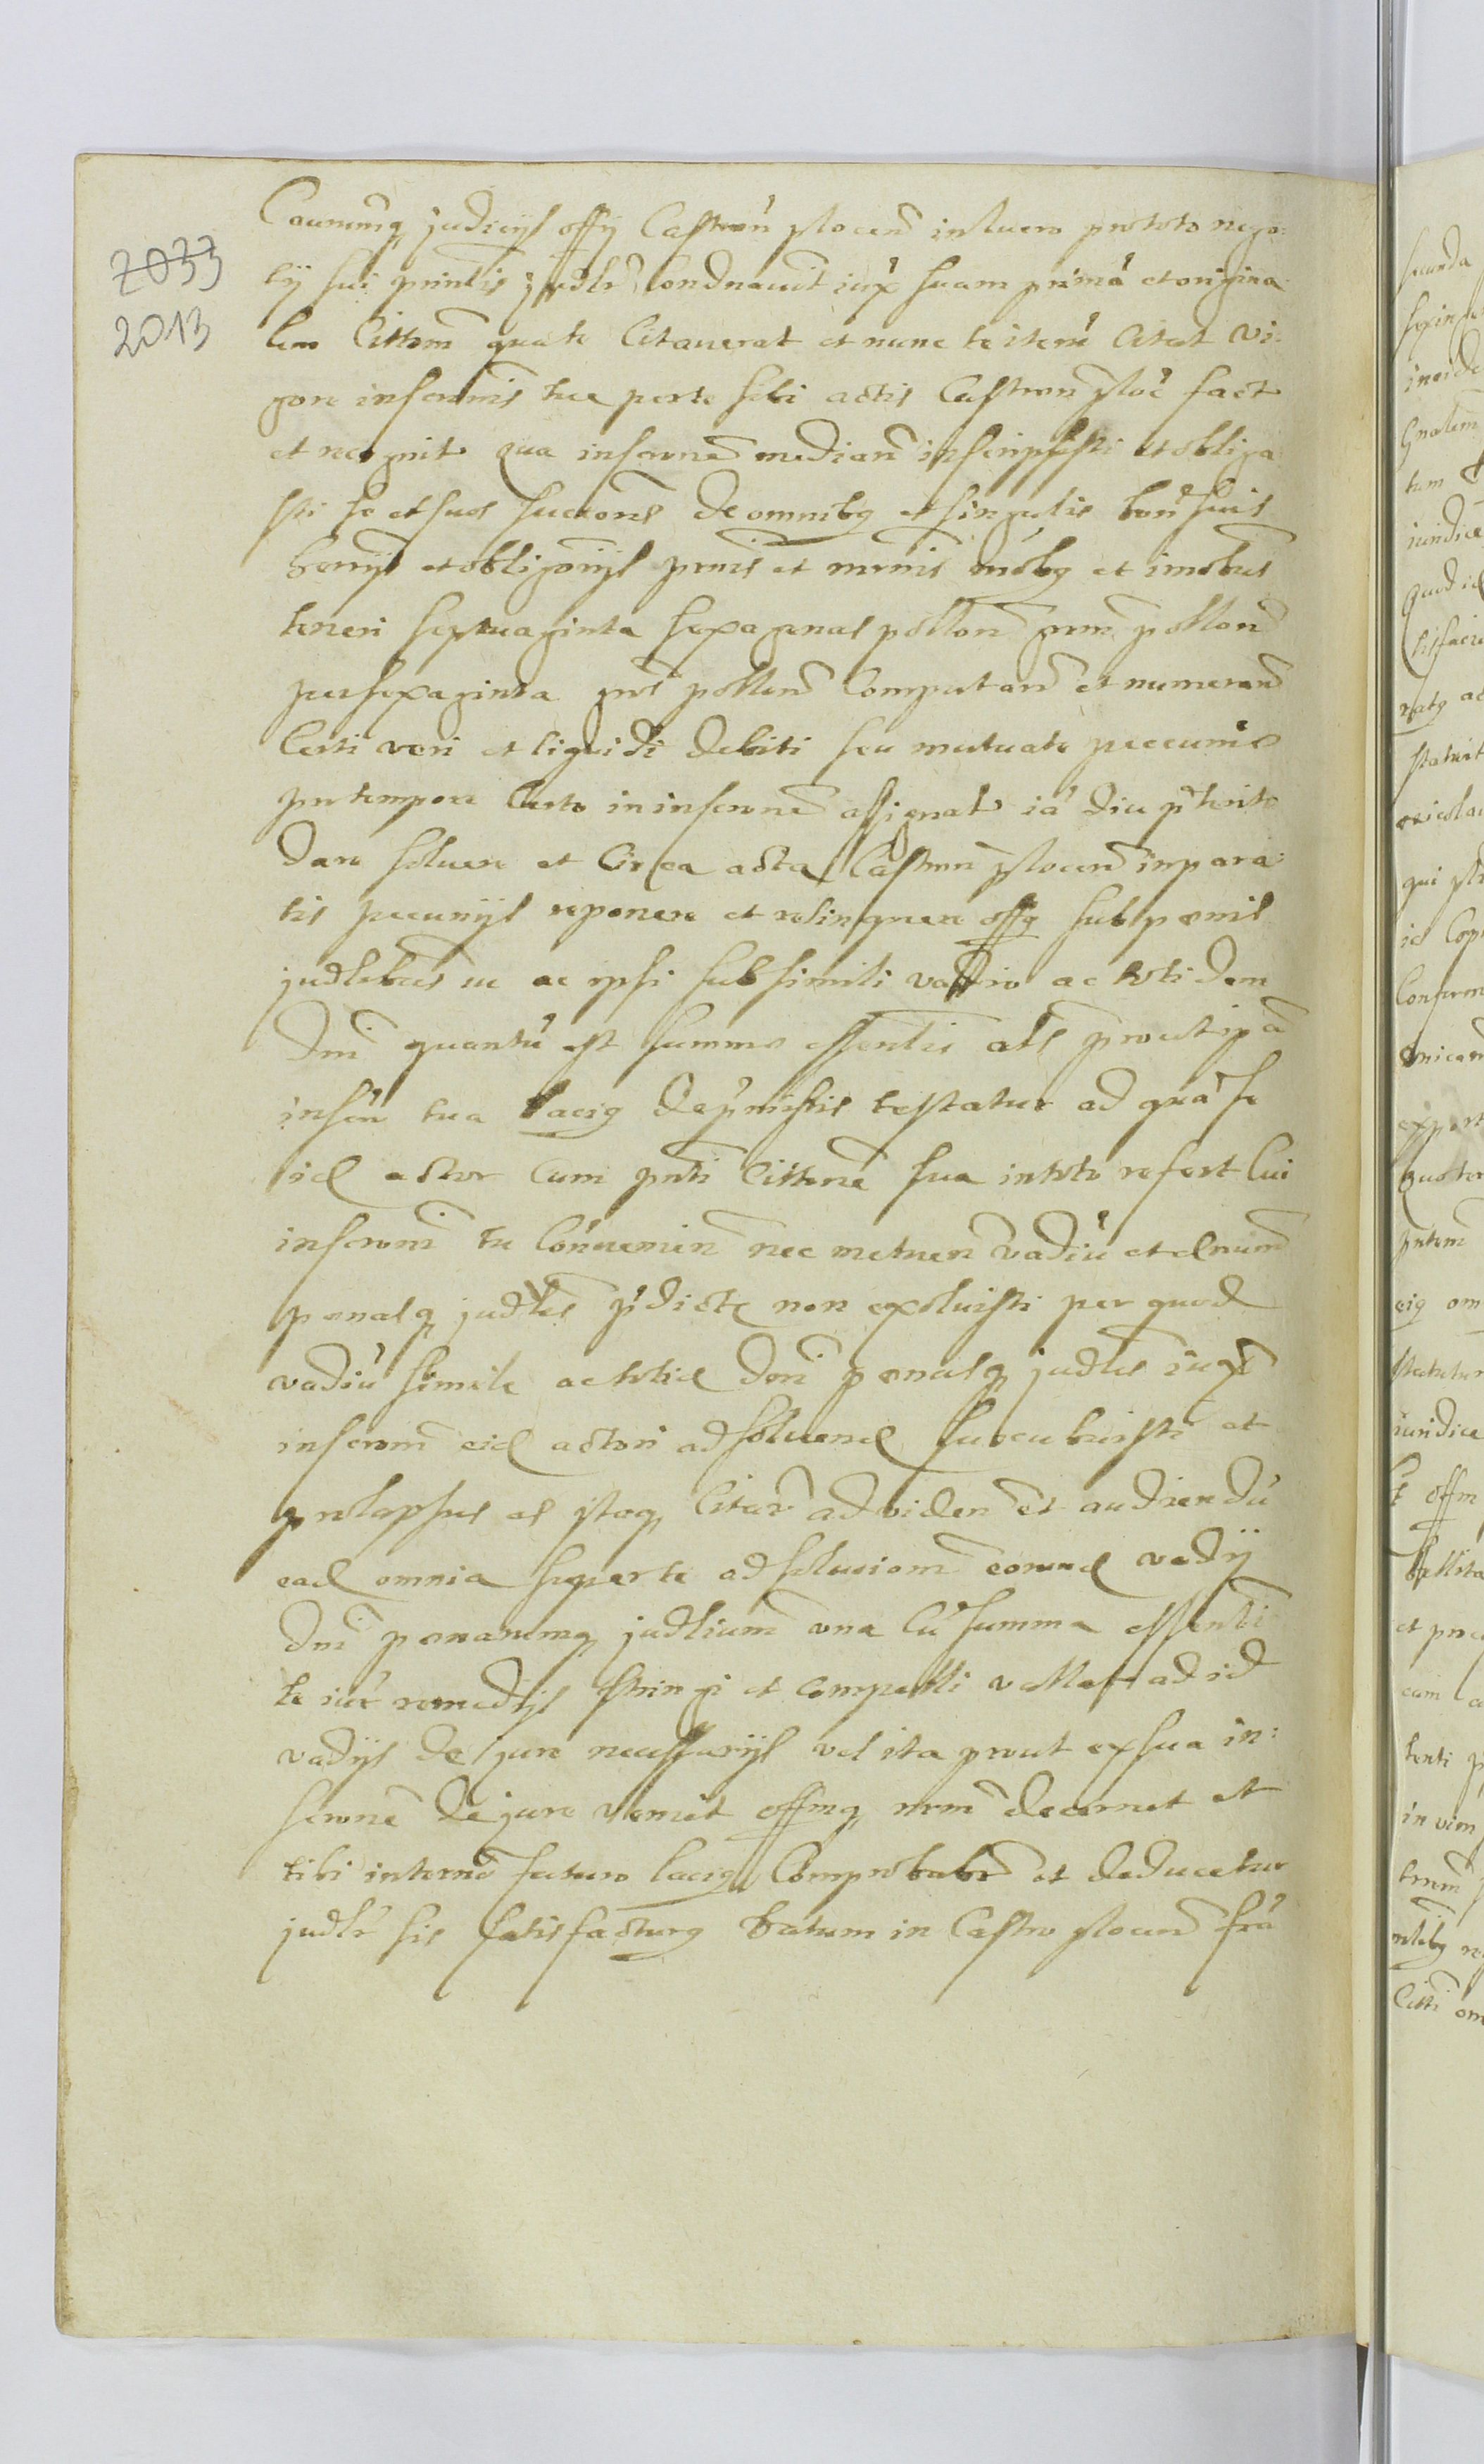 2033
2013
Caunumq judicijs offy Castren plocen in luero pro toto nego:
ty sui prinlis judlr Condnauit iux suam prima et origina
lem Cittom qua te Citauerat et nunc te iteru Citat vi:
gore inscronis tue per te sibi actis Castren ploc fact
et recognit qua inscrone median inscripsisti et obliga
sti se et suos succores de omnibq et singulis bon suis
hereijs et obligorijs pntis et mrnis mobq et imobus
teneri septuaginta sexagenas pollon grm pollon
per sexaginta grs pollon Computan et numeran
Certi veri et liquidi debiti seu mutuate peccunie
pro tempore Certo in inscrone assignat ia diu pterito
dare soluere et Circa acta Castren plocen in para:
tis pecunijs reponere et relinquere offq sub penis
judlibus ac ipsi sub simili vadio ac toti dem
dni quantu est summe essenlis als prout ipa
inscro tua laciq de pmissis testatur ad qua se
id actor Cum pnti Cittone sua in toto refert Cui
inscroni tu Conuenien nec metuen vadiu et dnum
penasq judles pdicte non exoluisti per quod
vadiu simile ac totid dni penasq judles iuxt
inscrom eid actori ad soluend succubuisti et
prolapsus es itaq Citar ad viden et audiendu
ead omnia super te ad solucionem eorund vadij
dni penarumq judlium vna Cu summa essenli
te iur remedijs stringi et compelli vellet ad id
vadijs de jure necessarijs vel ita prout ex sua in:
scrone de jure venit offmq nrm decernet et
tibi in termo futuro laciq Comprobabr et deducetur
judlr sis satisfacturq Datum in Castro plocen fra